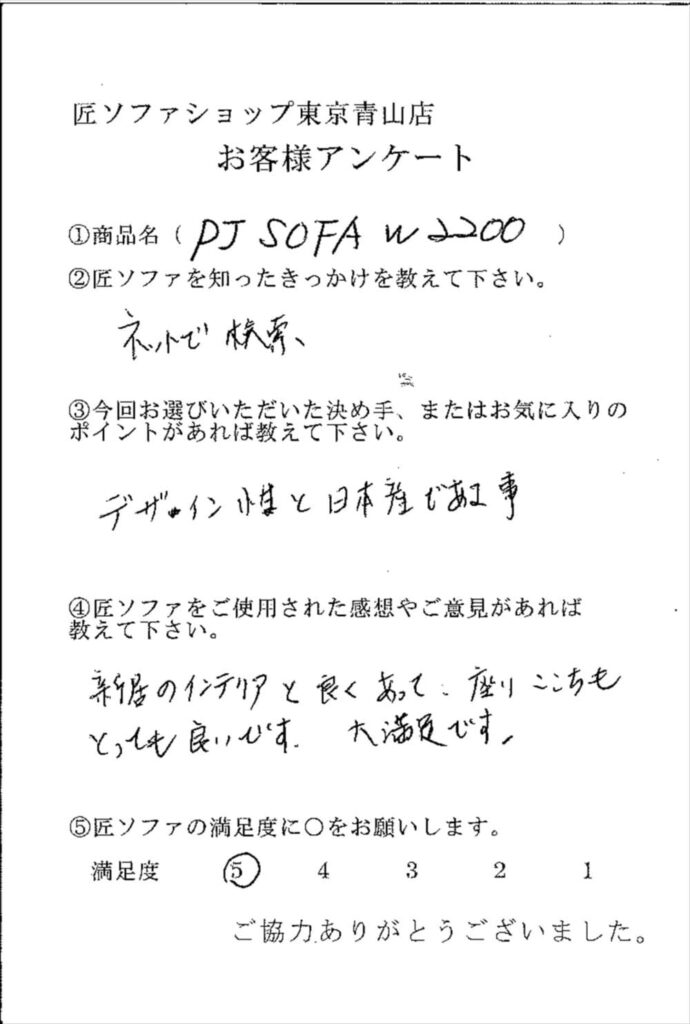 匠ソファショップ東京青山店
お客様アンケート
①商品名（ PJ SOFA W2200 ）
②匠ソファを知ったきっかけを教えて下さい。
ネットで検索、
③今回お選びいただいた決め手、またはお気に入りの
ポイントがあれば教えて下さい。
デザイン性と日本産である事
④匠ソファをご使用された感想やご意見があれば
教えて下さい。
新居のインテリアと良くあって、座りここちも
とっても良いです。大満足です。
⑤匠ソファの満足度に〇をお願いします。
満足度 5 4 3 2 1
ご協力ありがとうございました。